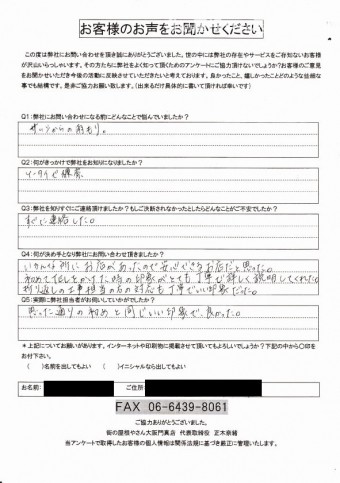 お客様のお声をお聞かせください
この度は弊社にお問い合わせを頂き誠にありがとうございました。世の中には弊社の存在やサービスをご存知ないお客様
が沢山いらっしゃいます。その方たちに弊社をよく知って頂くためのアンケートにご協力頂けないでしょうか?お客様のご意見
をお聞かせいただき今後の活動に反映させていただきたいと考えております。良かったこと、嬉しかったことどのような些細な
事でも結構です。是非ご協力お願い致します。(出来るだけ具体的に書いて頂ければ幸いです)
Q1:弊社にお問い合わせになる前にどんなことで悩んでいましたか?
サッシからの雨もり。
Q2:何がきっかけで弊社をお知りになりましたか?
検索
Q3:弊社を知りすぐにご連絡頂けましたか?もしご決断されなかったとしたらどんなことがご不安でしたか?
すぐに連絡した。
Q4:何が決め手となり弊社にお問い合わせ頂きましたか?
所にお店があったので安心できるお店だと思った。
初めてTELをかけた時の印象がとても丁寧で詳しく説明してくれた。
折り返しの工事担当の方の対応も丁寧でいい印象だった。
Q5:実際に弊社担当者がお伺いしていかがでしたか?
思った通りの初めと同じいい印象で、良かった。
* 上記についてお願いがあります。インターネットや印刷物に掲載させて頂いてもよろしいでしょうか?下記の中から〇印を
お付下さい。
( )名前を出してもよい ( )イニシャルなら出してもよい
お名前: ご住所:
FAX 06-6439-8061
ご協力ありがとうございました。
街の屋根やさん大阪門真店 代表取締役 正木奈緒
当アンケートで取得したお客様の個人情報は関係法規に基づき厳正に管理いたします。